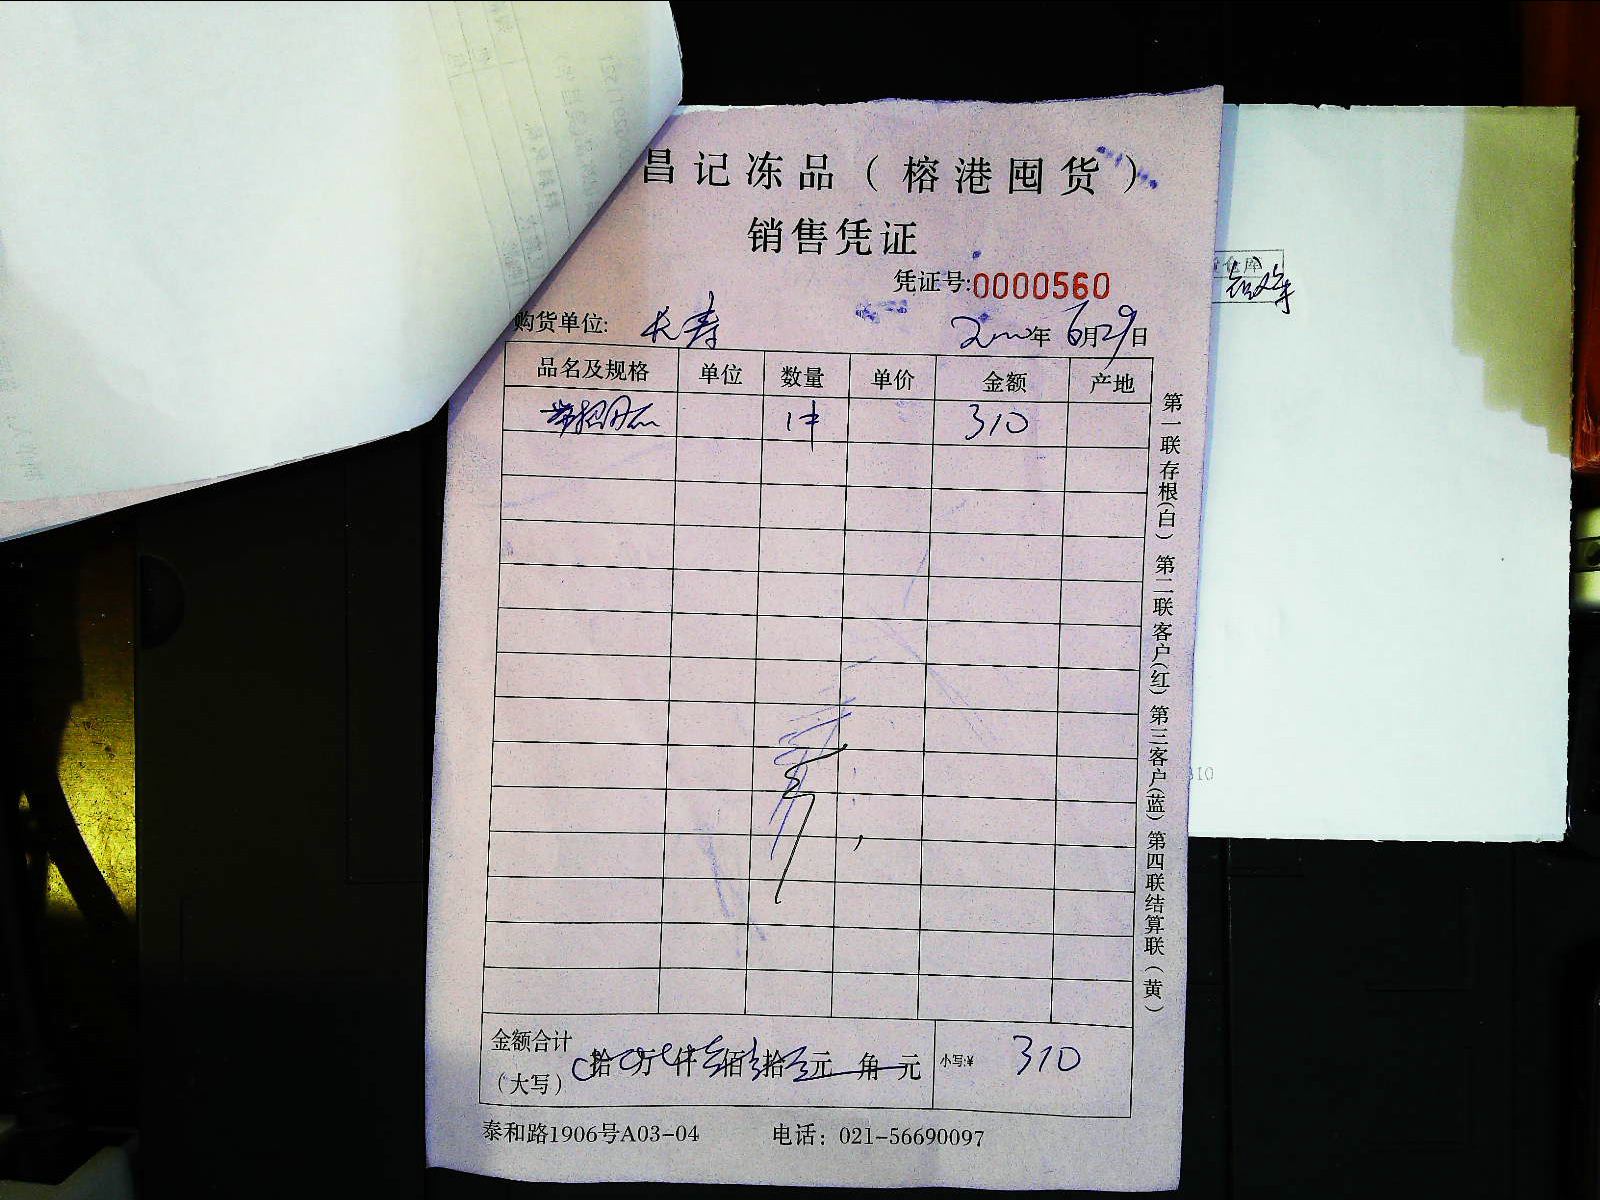 昌记冻品（榕港囤货）
销售凭证
凭证号:0000560
购货单位: 长寿 年 6月29日
品名及规格 单位 数量 单价 金额 产地
1件 310
第一联存根(白) 第二联客户(红) 第三客户(蓝) 第四联结算联(黄)
金额合计
（大写） 拾 万 仟 佰 拾 元 角 元 小写:¥ 310
泰和路1906号A03-04 电话：021-56690097
310